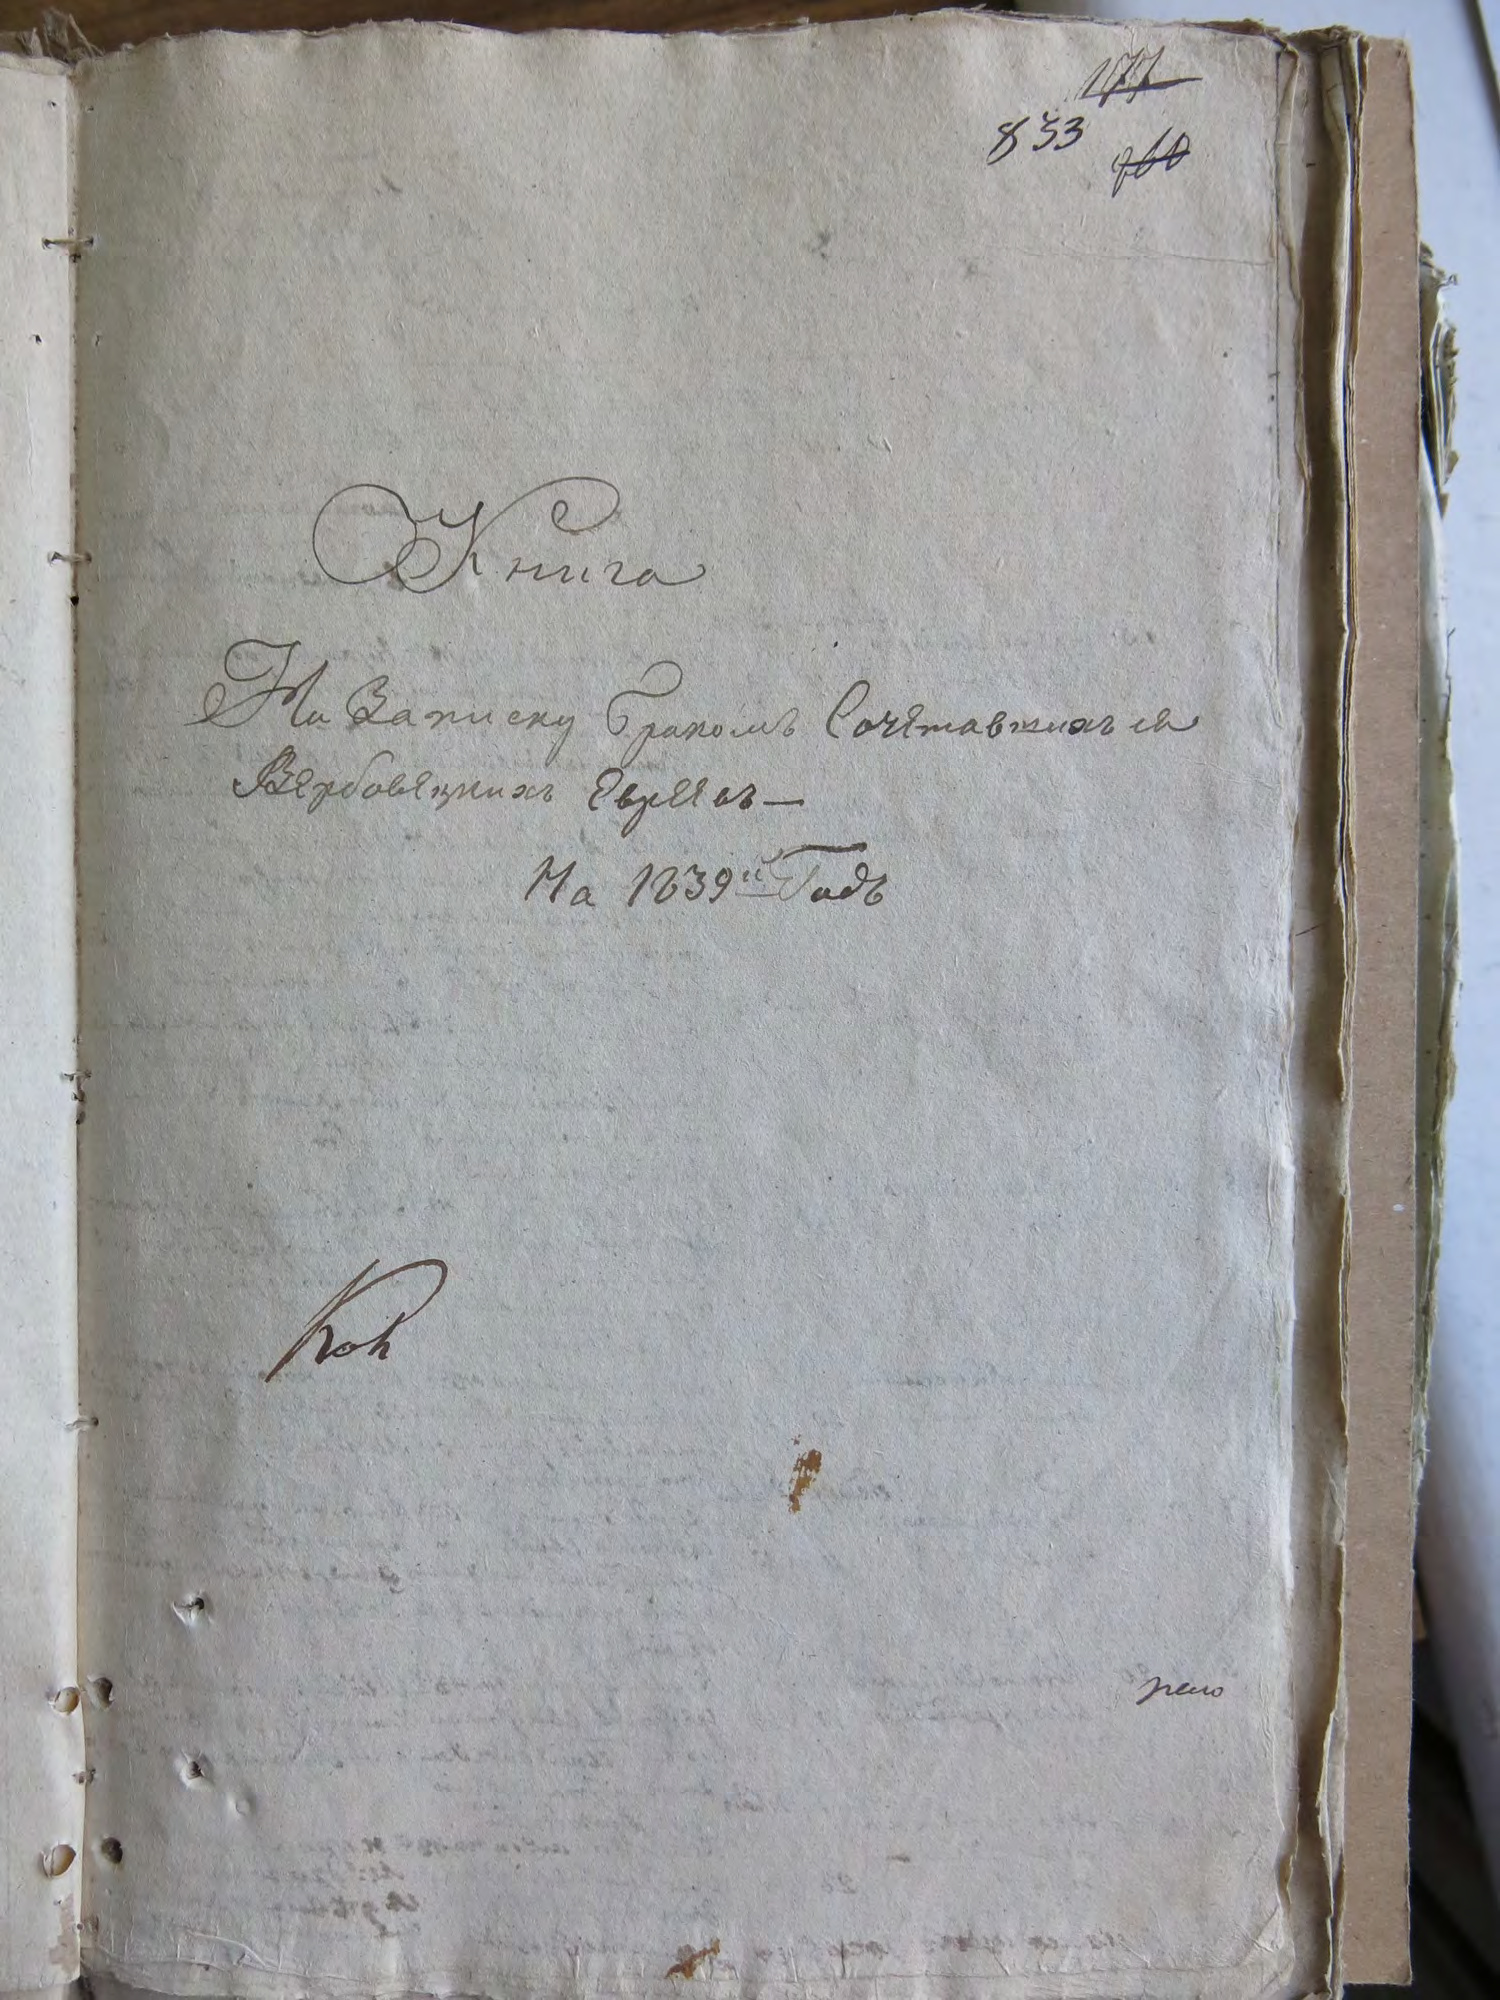 177
833
960
Книга
На Записку бракомъ Сочетавшихъся
Вербовецкихъ Евреевъ —
На 1839й Годъ